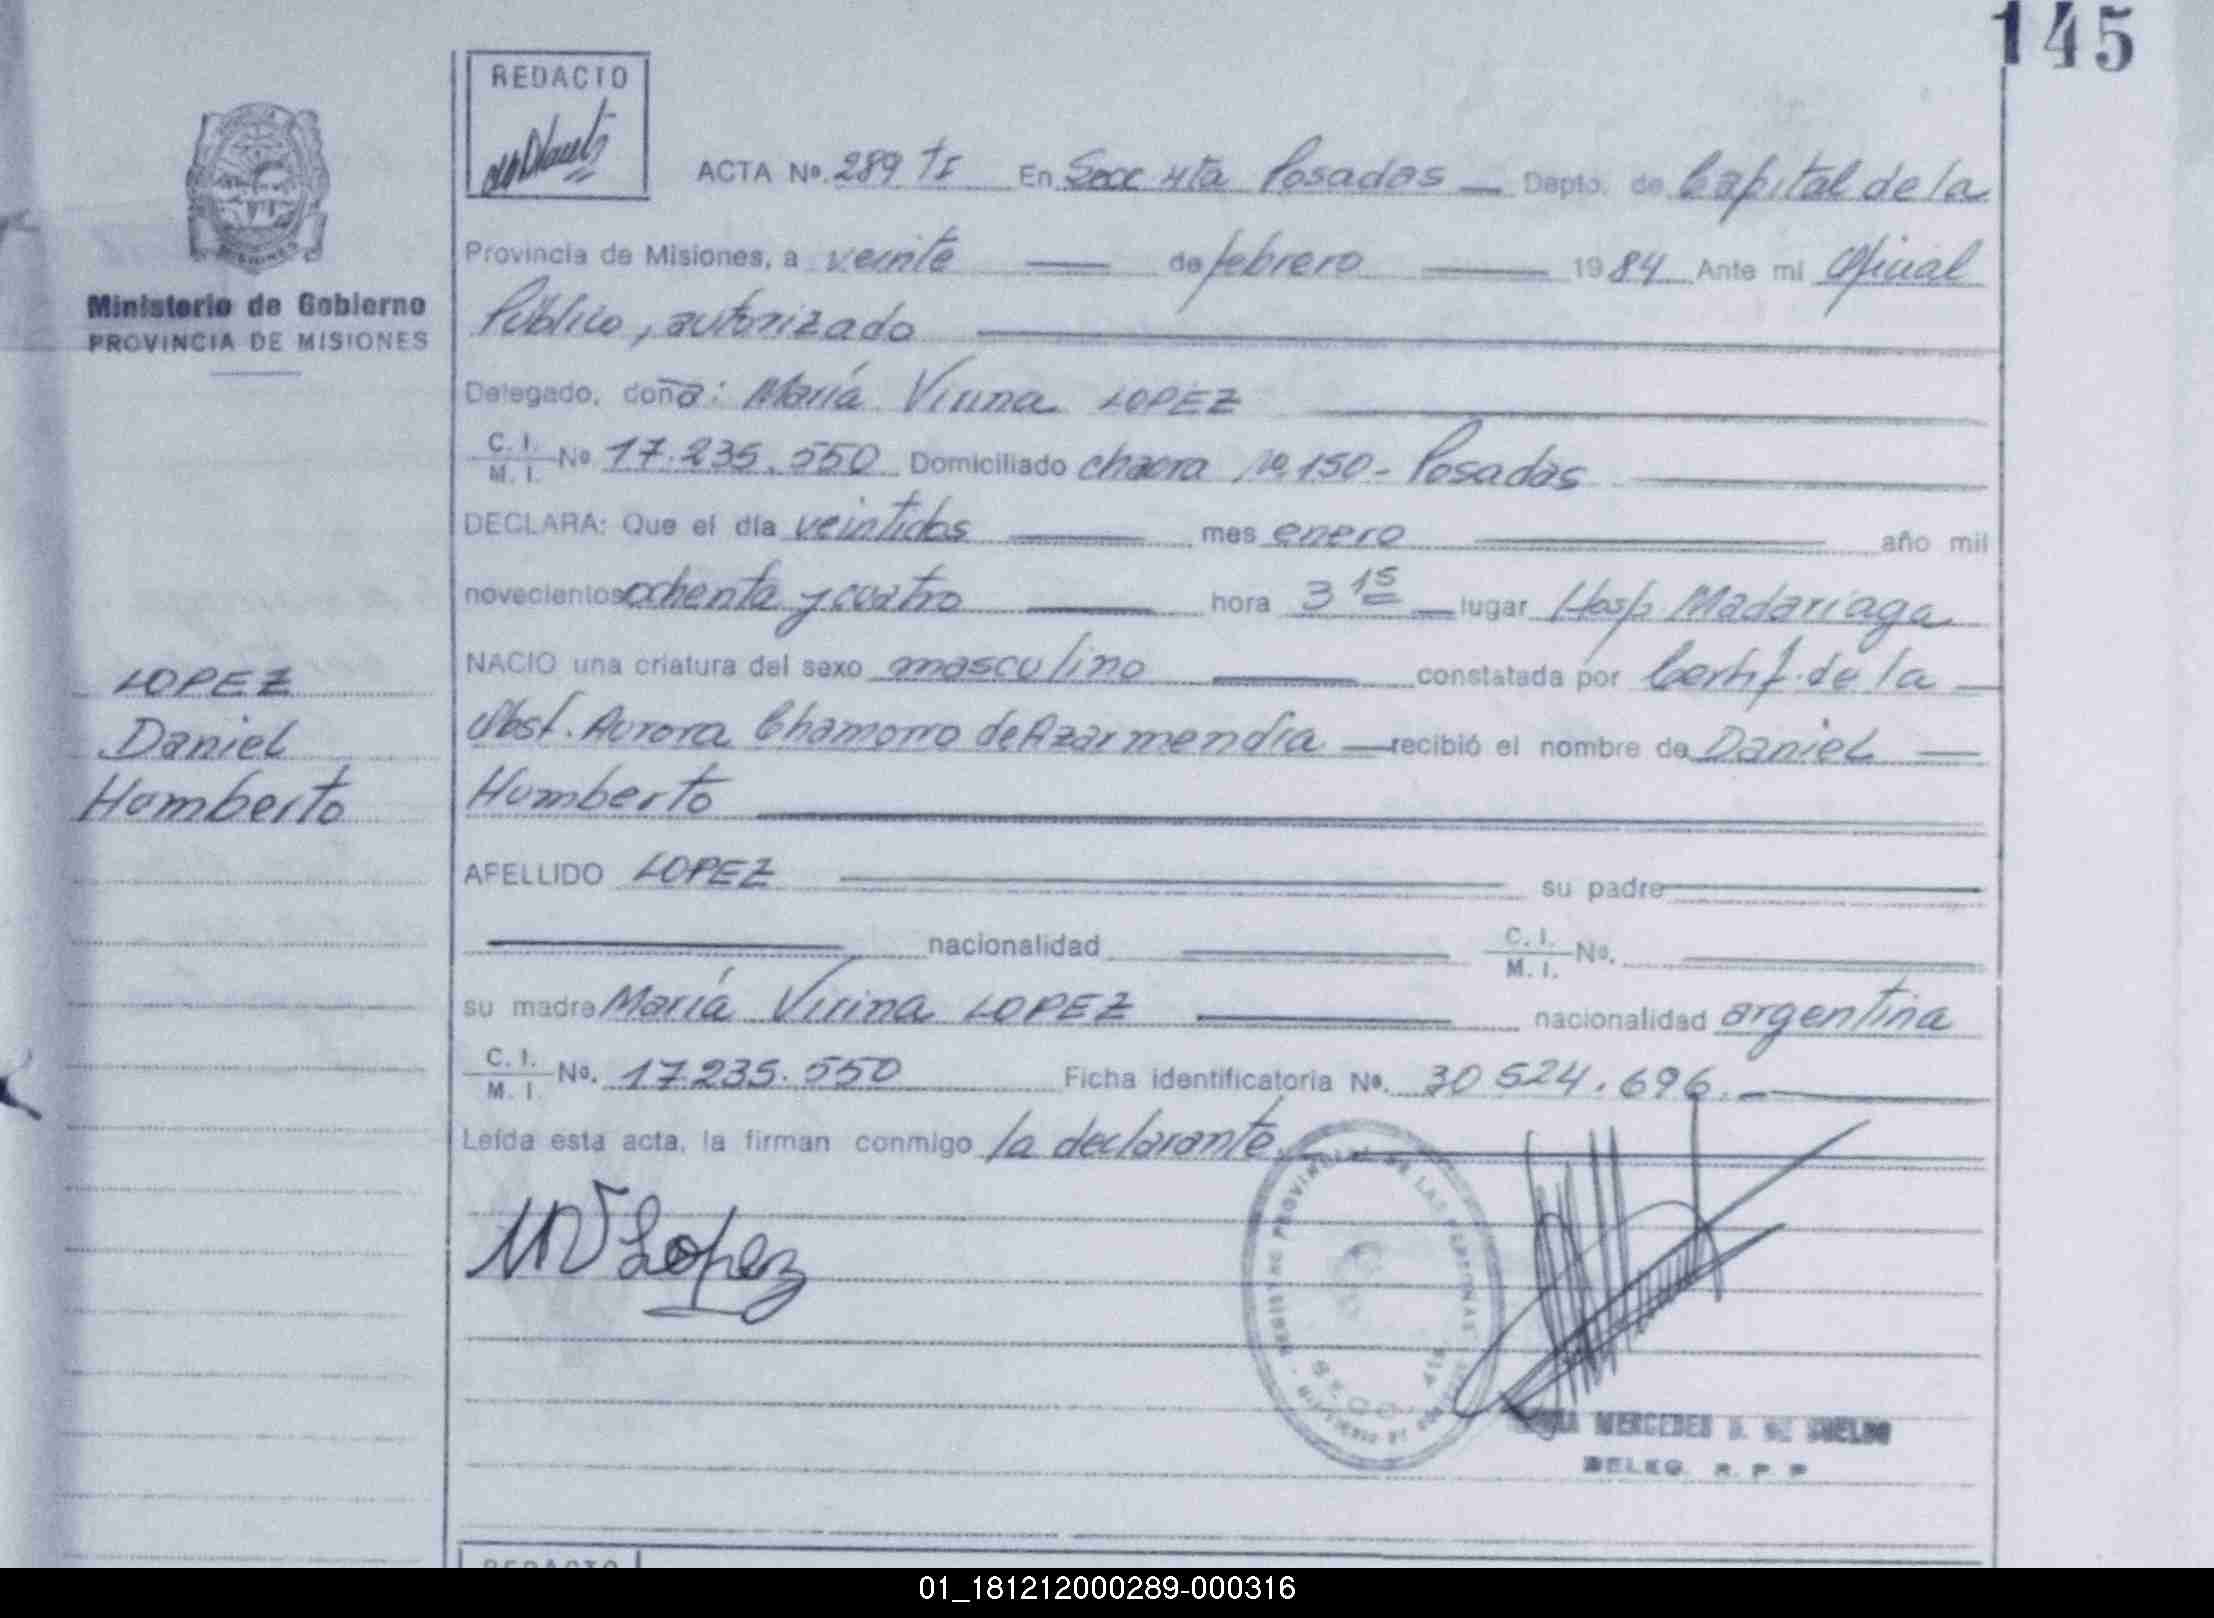 145
REDACTO
ACTA Nº. 289 TI En Secc 4ta Posadas Depto. de Capital de la
Provincia de Misiones, a veinte de febrero 1984 Ante mi Oficial
Público, autorizado
Delegado, doña: María Virina LOPEZ
C. I.
M. I. Nº 17.235.550 Domiciliado chacra Nº 150 - Posadas
DECLARA: Que el día veintidos mes enero año mil
novecientos ochenta y cuatro hora 3 15 lugar Hosp. Madariaga
NACIO una criatura del sexo masculino constatada por Certif. de la
Obst. Aurora Chamorro de Azarmendia recibió el nombre de Daniel
Humberto
APELLIDO LOPEZ su padre
nacionalidad C. I.
M. I. Nº.
su madre María Virina LOPEZ nacionalidad argentina
C. I.
M. I. Nº. 17.235.550 Ficha identificatoria Nº. 30 524.696.
Leída esta acta, la firman conmigo la declarante.
MV Lopez
MERCEDES
DELEG. R. P. P
REDACTO
Ministerio de Gobierno
PROVINCIA DE MISIONES
LOPEZ
Daniel
Humberto
01_181212000289-000316